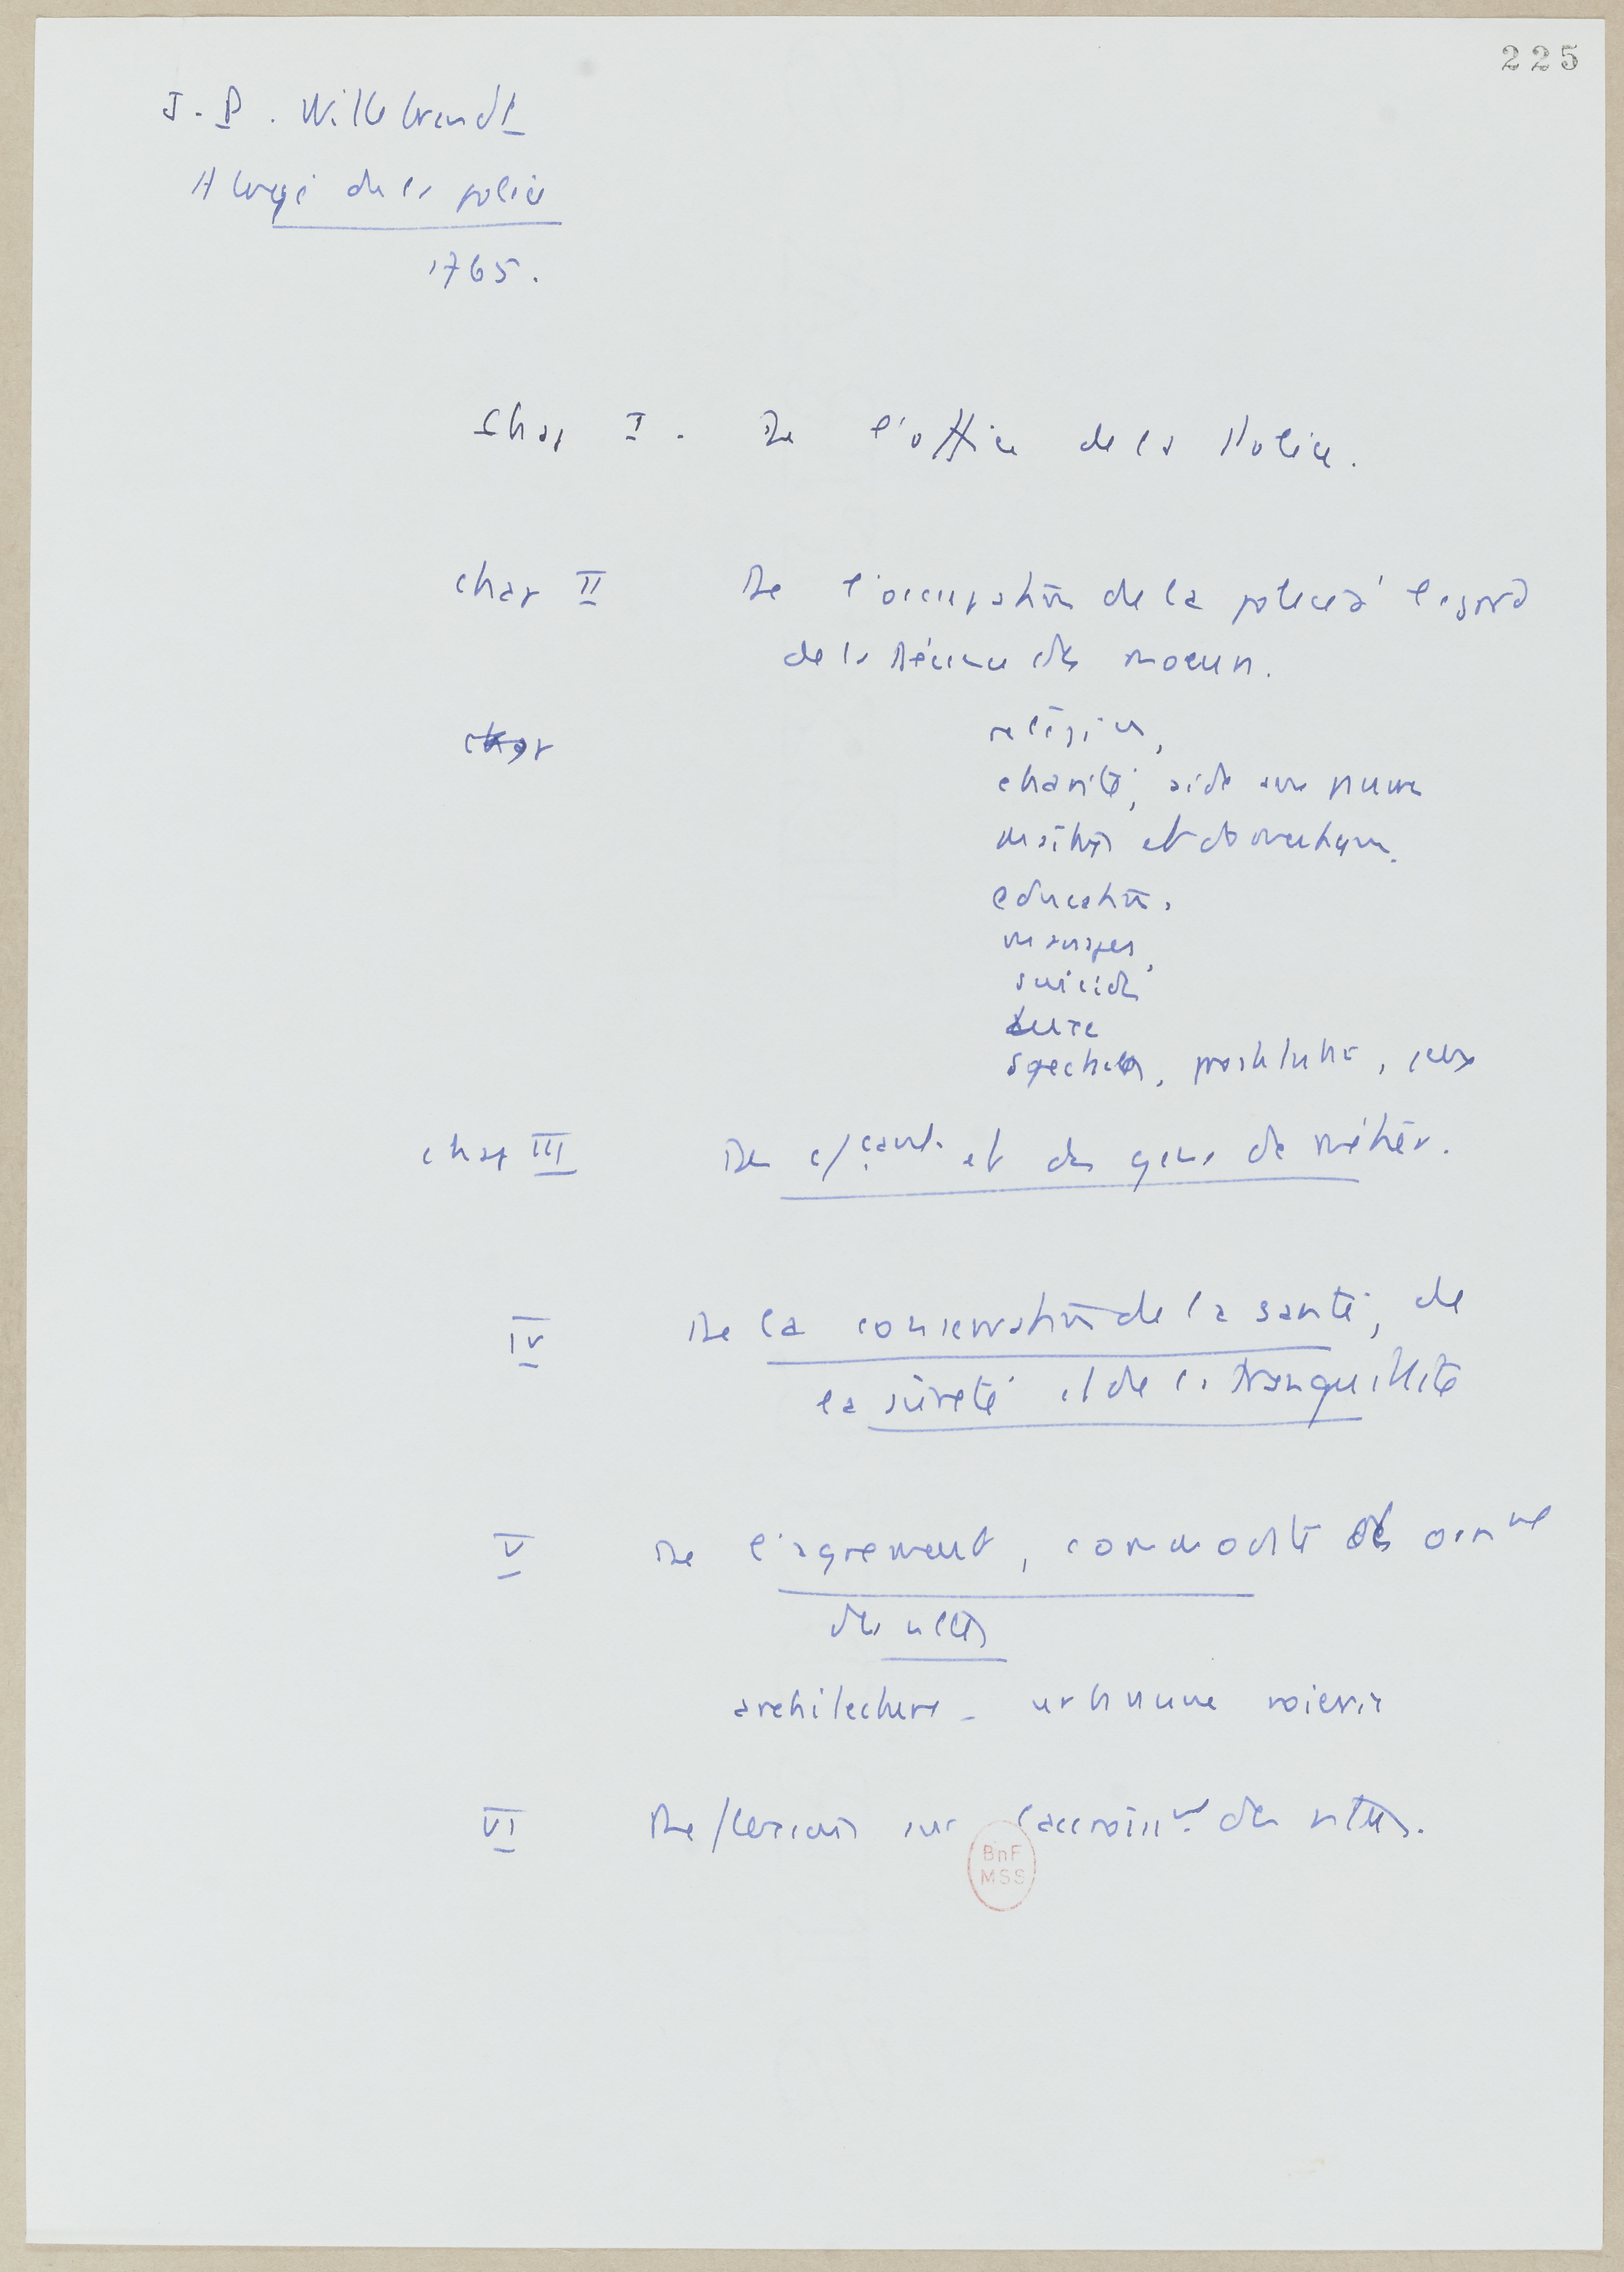 225
J. P. Willebrandt
Abregé de la police
1765.
Chap I. De l'office de la Police.
chap II De l'occupation de la police à l'egard
de la décence des moeurs.
chap religion,
charité, aide aux pauvres
maîtres et domestiques.
education.
mariages,
suicide
luxe
spectacles, prostitution, jeux
chap III Des et des gens de métier.
IV De la conservation de la santé, de
la sûreté et de la tranquillité
V De l'agrement, commodité des
des villes
architecture - urbanisme voierie
VI Reflexions sur l'accroisst des villes.
BnF
MSS